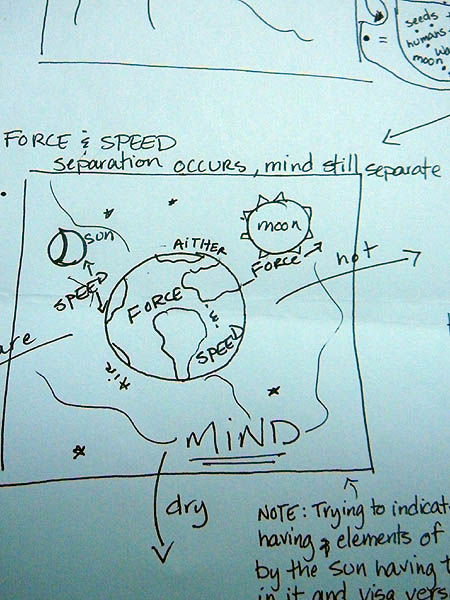 seeds
humans
moon
=
FORCE & SPEED
separation OCCURS, mind still separate
sun
moon
AiTHER
FORCE
hot
SPEED
FORCE
&
SPEED
are
Air
MiND
dry
NOTE: Trying to indicat
having elements of
by the sun having t
in it and visa vers